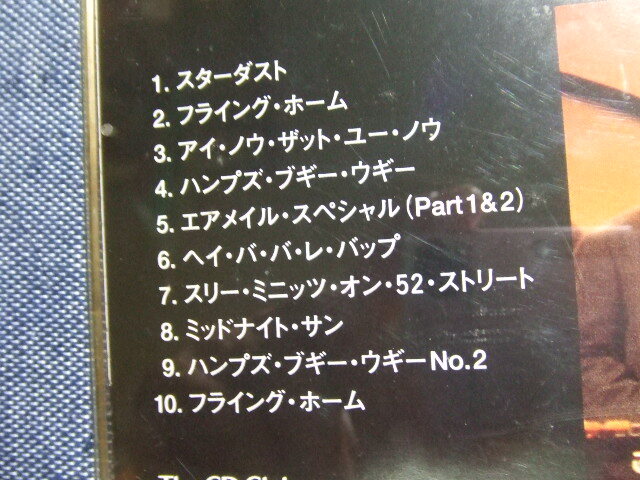 1. スターダスト
2. フライング・ホーム
3. アイ・ノウ・ザット・ユー・ノウ
4. ハンプズ・ブギー・ウギー
5. エアメイル・スペシャル (Part 1 & 2)
6. ヘイ・バ・バ・レ・バップ
7. スリー・ミニッツ・オン・52・ストリート
8. ミッドナイト・サン
9. ハンプズ・ブギー・ウギー No. 2
10. フライング・ホーム
The CD